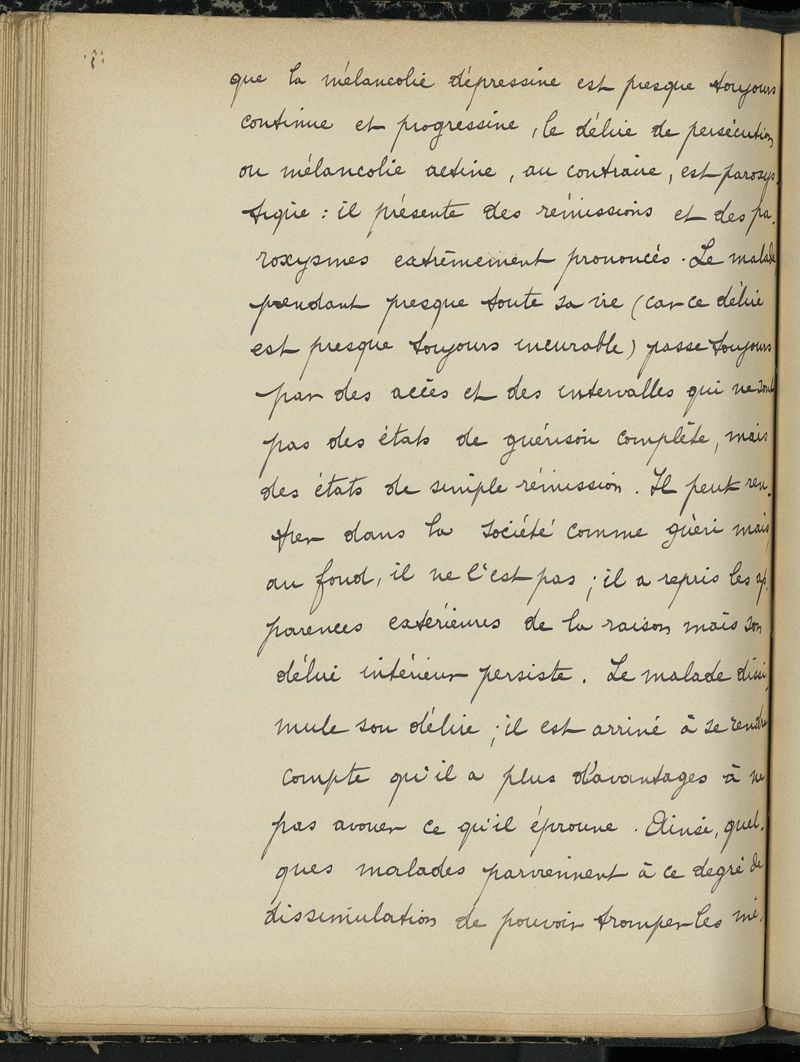 que la mélancolie dépressive est presque toujours
continue et progressive, le délire de persécution
ou mélancolie active, au contraire, est paroxys-
tique : il présente des rémissions et des pa-
roxysmes extrêmement prononcés. Le malade
pendant presque toute sa vie (car ce délire
est presque toujours incurable) passe toujours
par des accès et des intervalles qui ne sont
pas des états de guérison complète, mais
des états de simple rémission. Il peut ren-
trer dans la société comme guéri mais,
au fond, il ne l'est pas ; il a repris les ap-
parences extérieures de la raison mais son
délire intérieur persiste. Le malade dissi-
mule son délire ; il est arrivé à se rendre
compte qu'il a plus d'avantages à ne
pas avouer ce qu'il éprouve. Ainsi, quel-
ques malades parviennent à ce degré de
dissimulation de pouvoir tromper les mé-